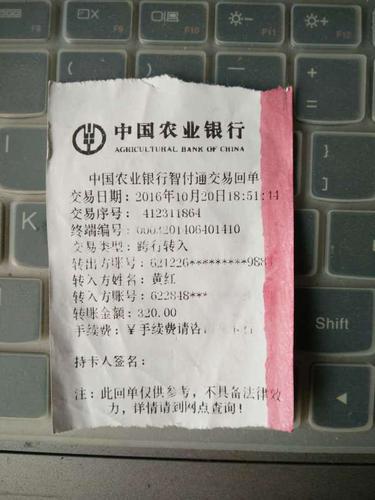 中国农业银行
AGRICULTURAL BANK OF CHINA
中国农业银行智付通交易回单
交易日期：2016年10月20日18:51:44
交易序号： 412311864
终端编号：0003201406401410
交易类型：跨行转入
转出方账号：621226*********988
转入方姓名：黄红
转入方账号：622848***
转账金额：320.00
手续费：￥手续费请咨
持卡人签名：
注：此回单仅供参考，不具备法律效
力，详情请到网点查询！
F8
F9
F10
F11
F12
Shift